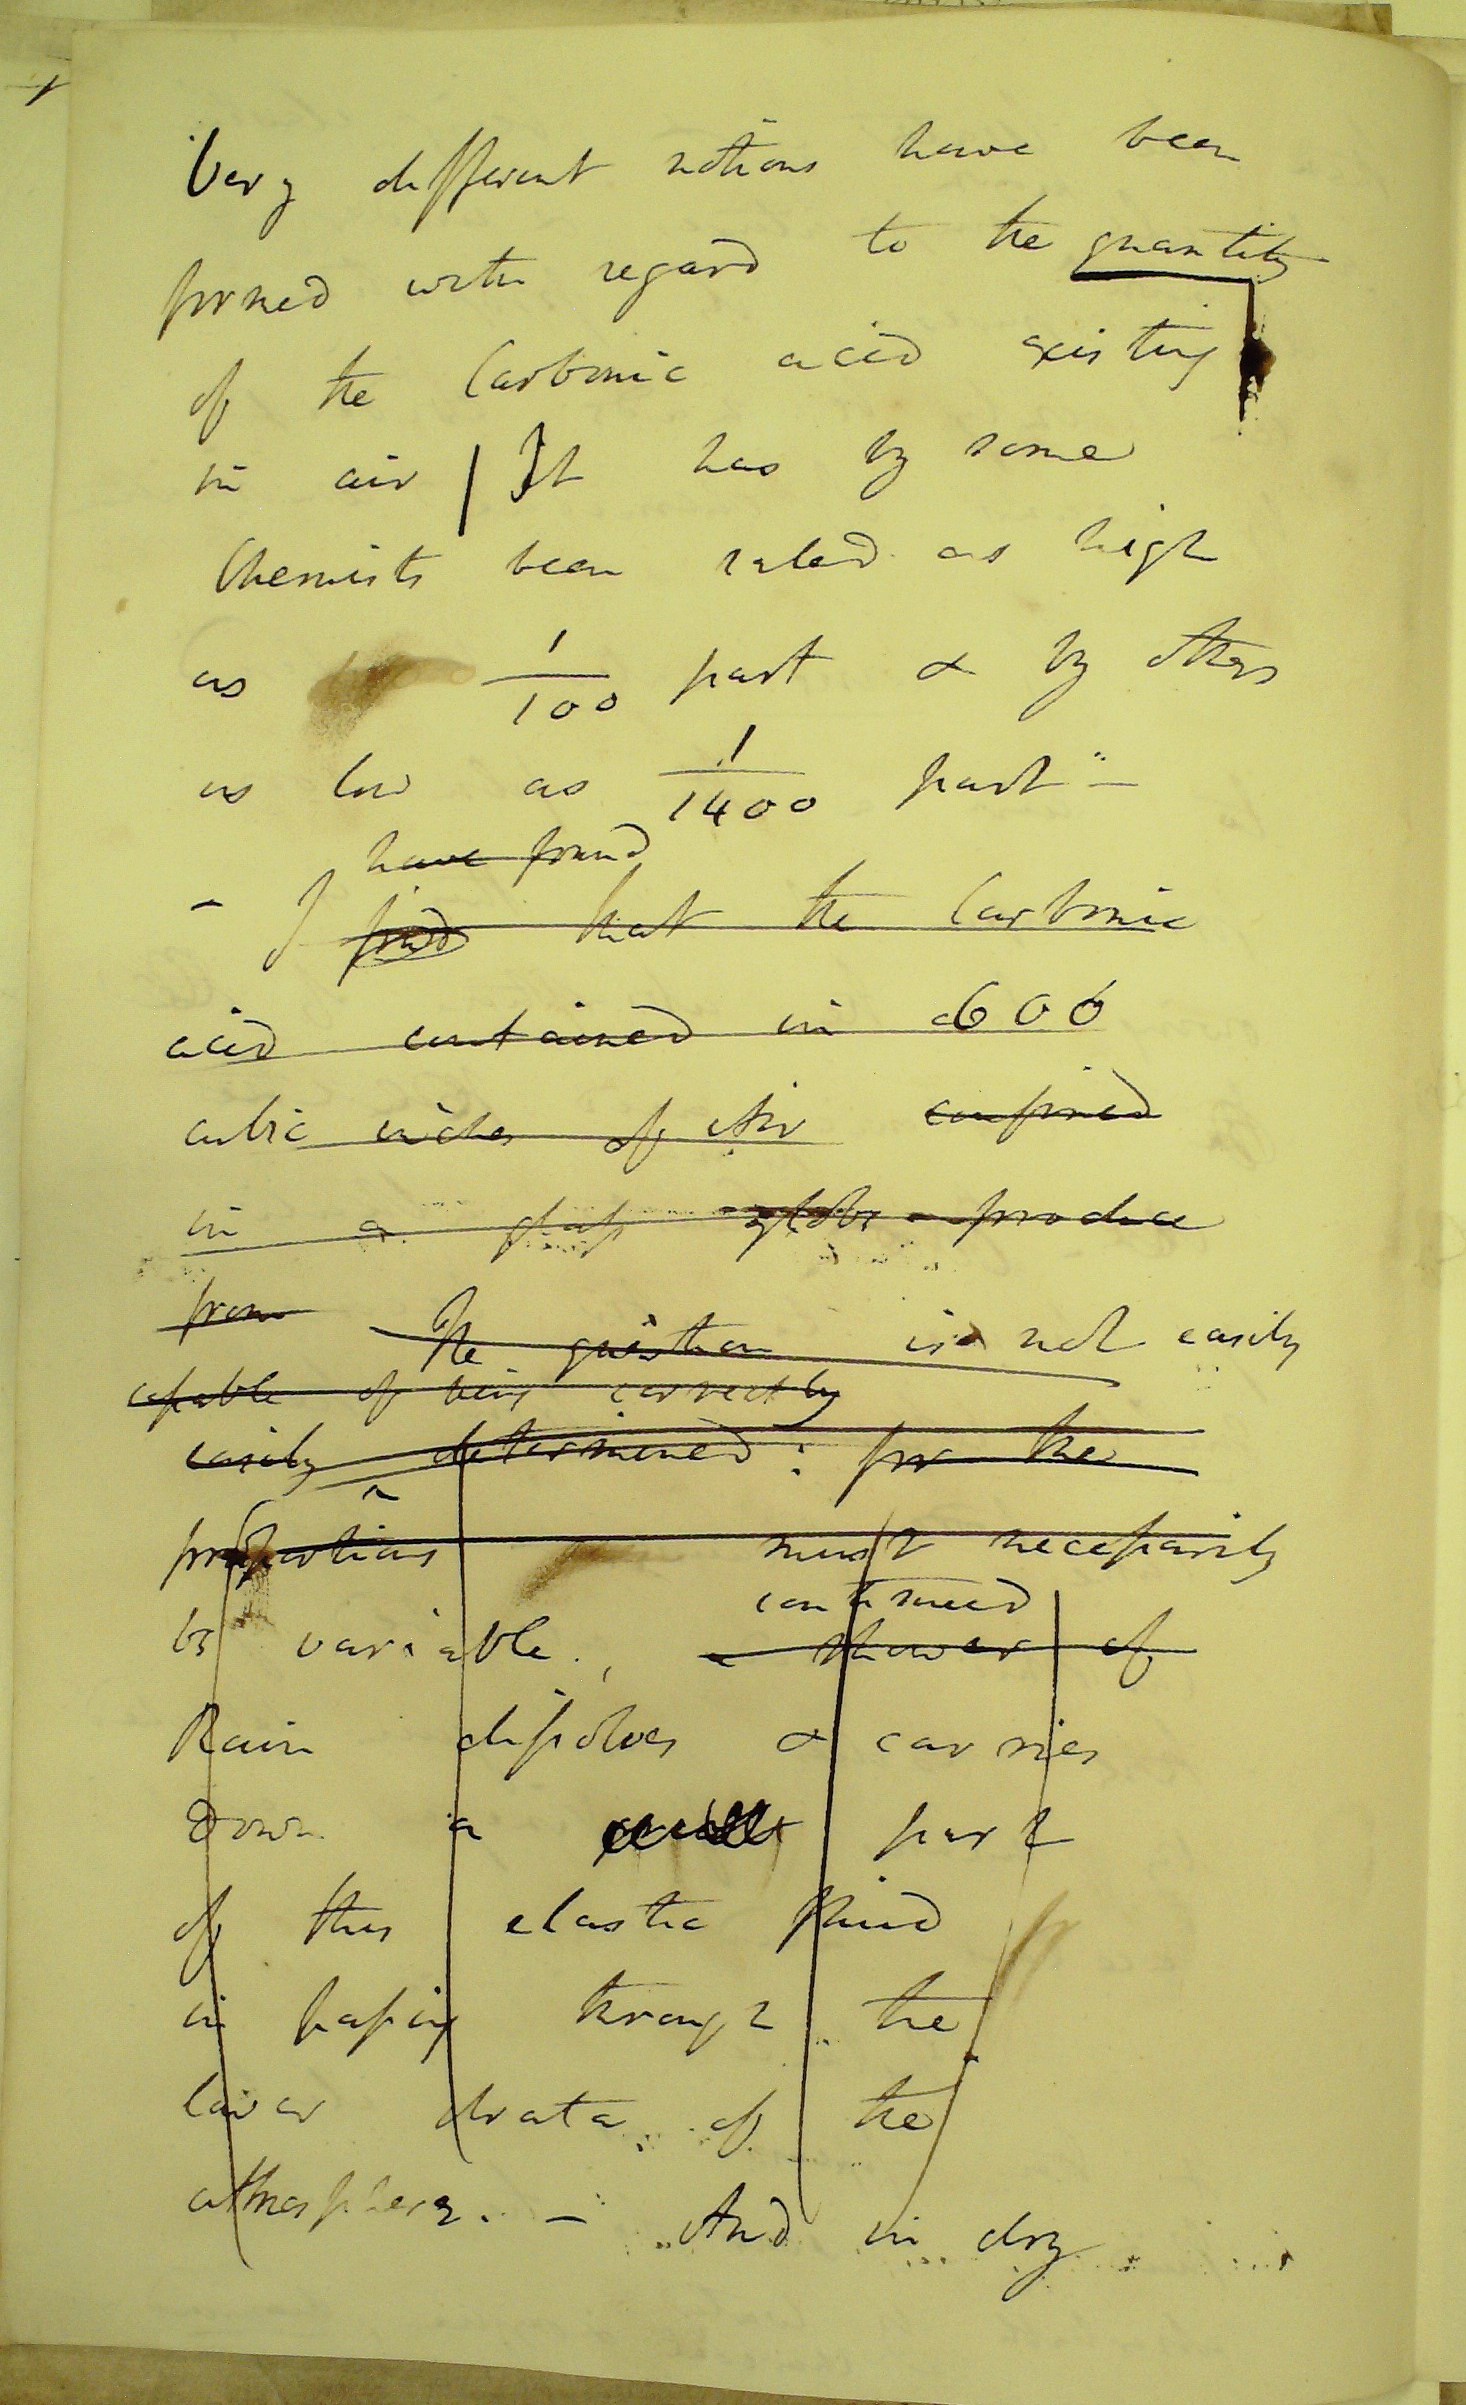 Very different notions have been
formed with regard to the quantity
of the Carbonic acid existing
in air | It has by some
Chemists been rated as high
as 1/100 part & by others
as low as 1/1400 part –
have found
– I find that the Carbonic
acid contained in 600
cubic inches of Air confined
in a glass globe produce
from The question is not easily
capable of being correctly
easily determined: for the
proportions must necessarily
be variable, continued
a shower of
Rain dissolves & carries
down a part
of this elastic fluid
in passing through the
lower strata of the
atmosphere. – And in dry